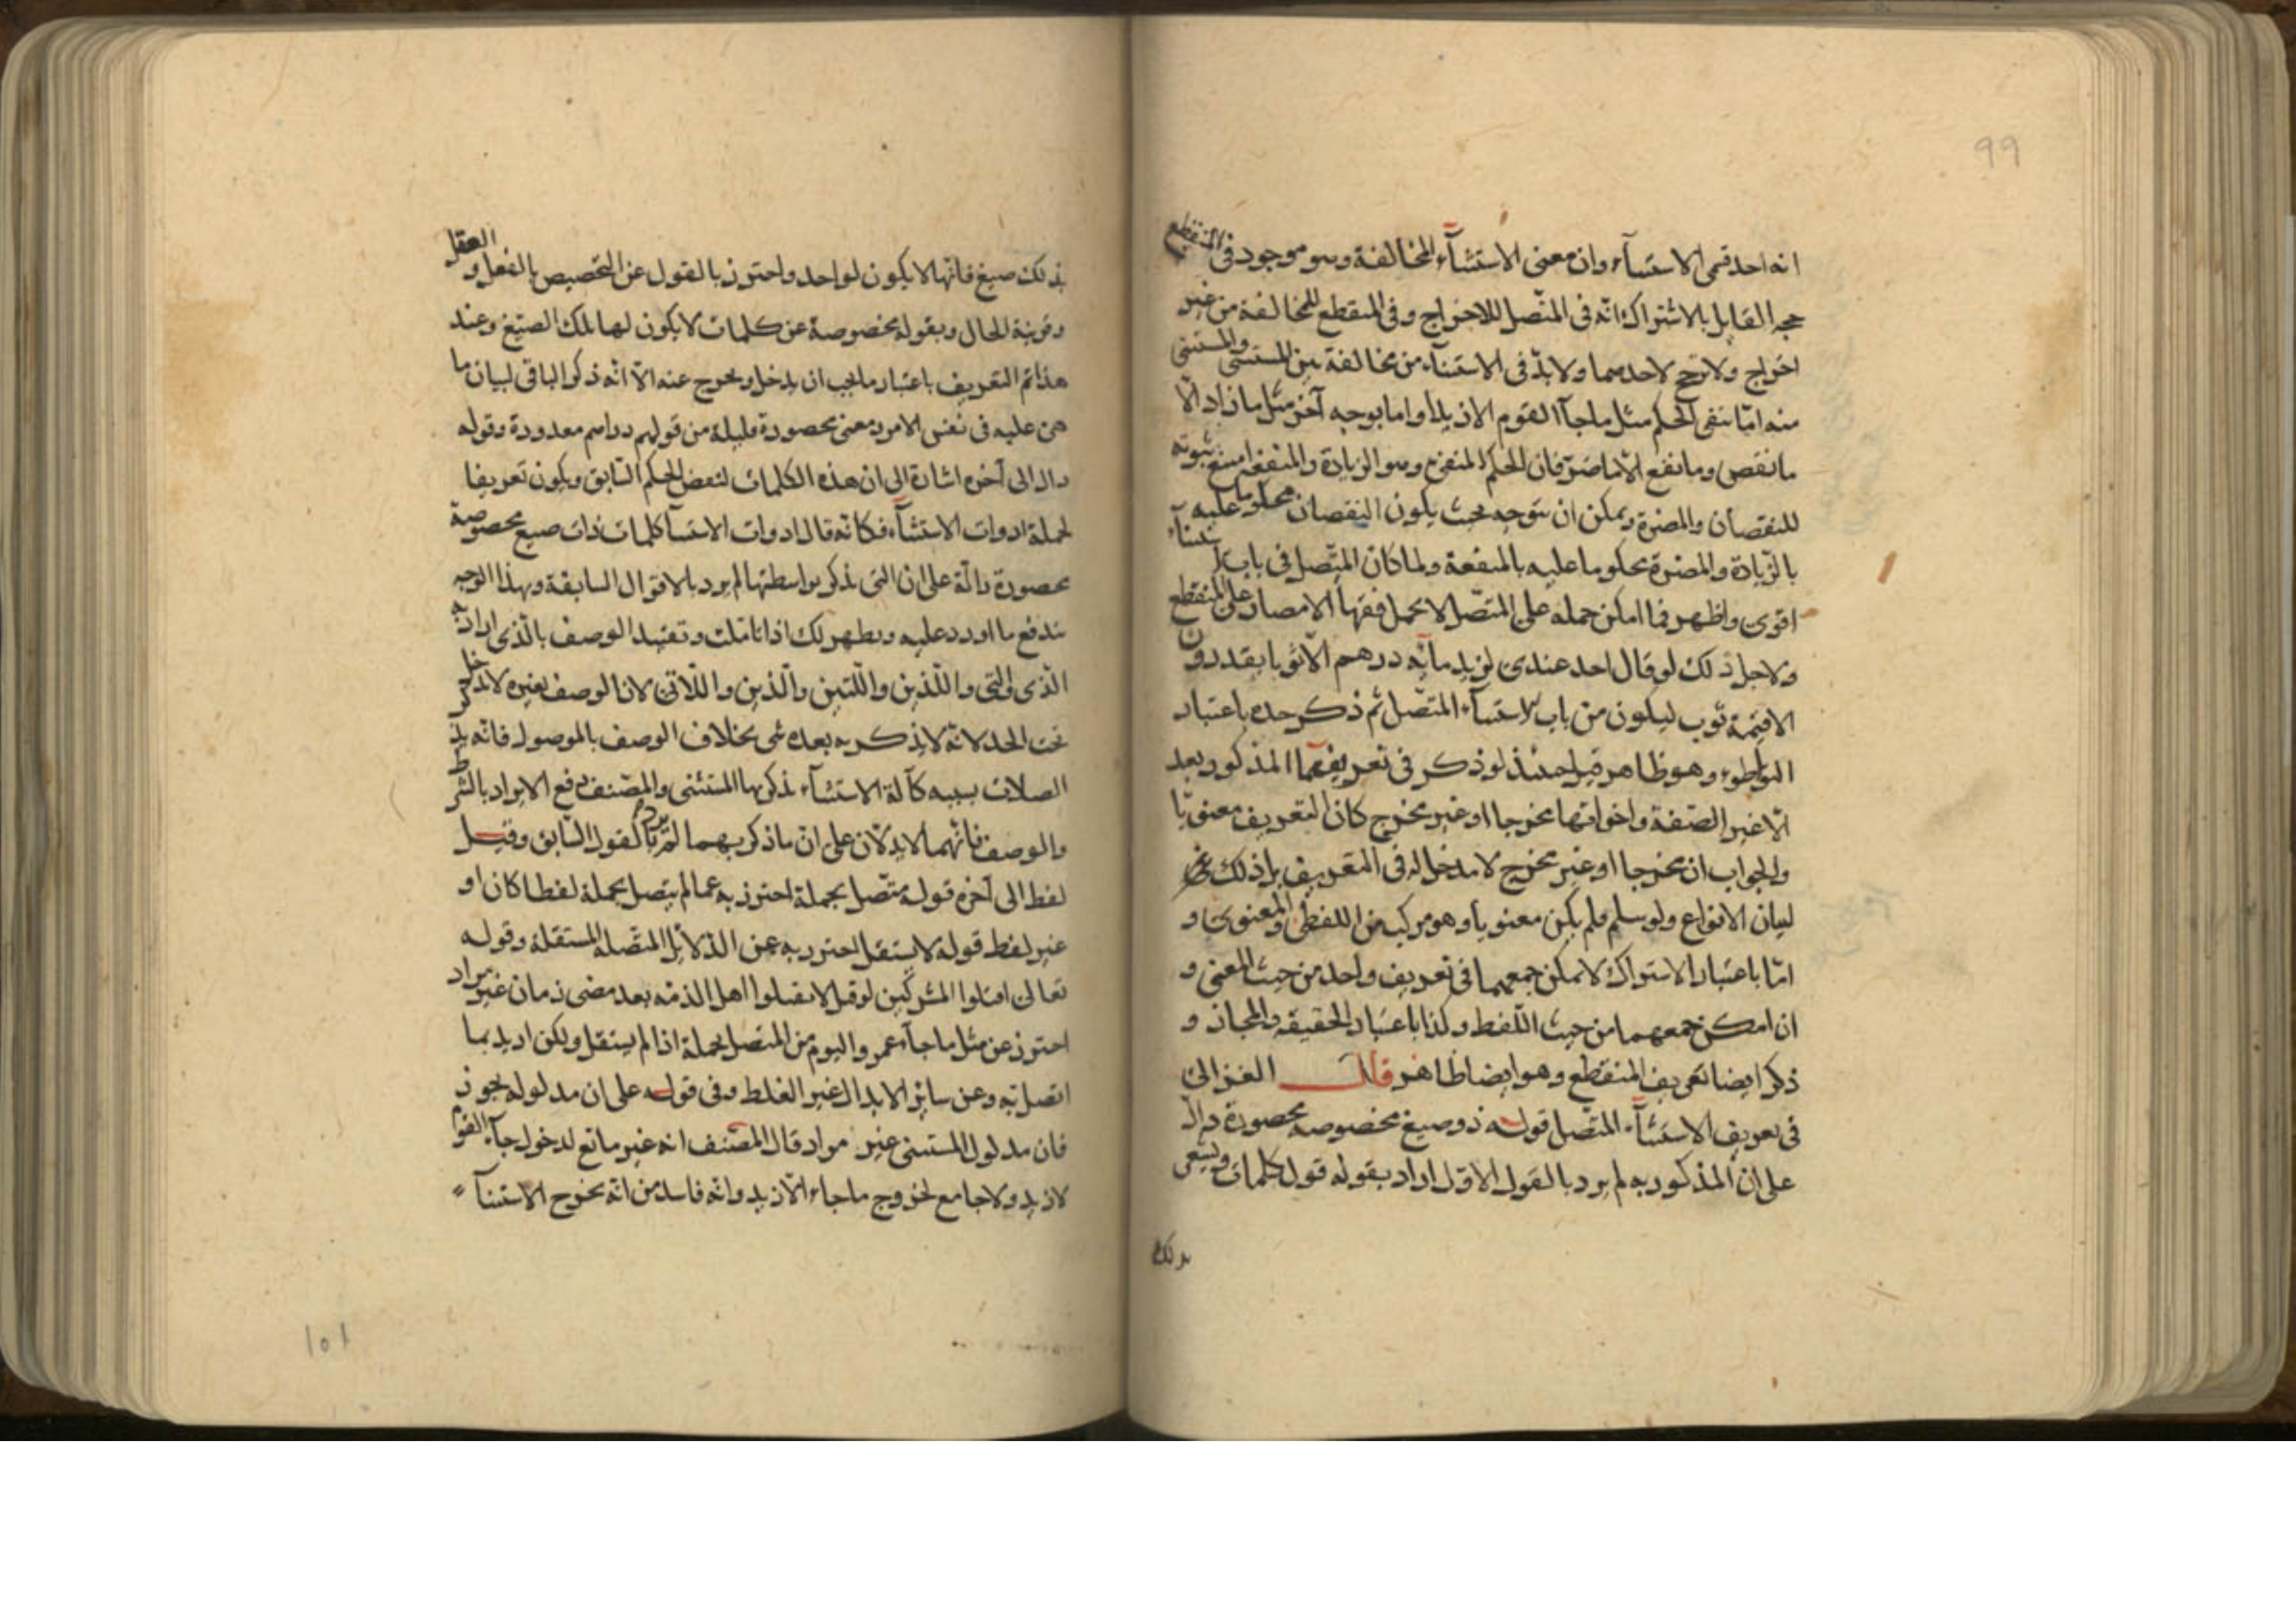 99
انه احد قسمى الاستثنآء وان معنى الاستثنآء المخالفة وهو موجود فى المنقطع
حجه القايل بالاشتراك انّه فى المتّصل للاخراج وفى المنقطع للمخالفة من غير
اخراج ولا ترجّح لاحدهما ولا بدّ فى الاستثنآء من مخالفة بين المستثنى والمستثنى
منه امّا بنفى الحكم مثل ما جآ القوم الا زيدا واما بوجه آخر مثل ما زاد الّا
ما نقص وما نفع الّا ما ضرّ فان الحكم المنفى وهو الزيادة والمنفعة ثبوته
للنقصان والمضرة ويمكن ان يتوجه بحيث يكون النقصان محكوما عليه
بالزّيادة والمضرة محكوما عليه بالمنفعة ولما كان المتّصل فى باب الاستثنآء
اقوى واظهر فما امكن حمله على المتّصل لا يحمل فقهآ الامصار على المنقطع
ولاجل ذلك لو قال احد عندى لزيد مائه درهم الّا ثوبا يقدرون
الا قيمة ثوب ليكون من باب الاستثنآء المتّصل ثم ذكر حده باعتبار
التواطوء وهو ظاهر قيل حينئذ لو ذكر فى تعريفهما المذكور بعد
الّا غير الصّفة واخواتها مخرجا او غير مخرج كان التعريف معنويّا
والجواب ان مخرجا او غير مخرج لا مدخل له فى التعريف بل ذلك
لبيان الانواع ولو سلم فلم يكن معنويا وهو مركب من اللفظى والمعنوى و
امّا باعتبار الاشتراك لا يمكن جمعهما فى تعريف واحد من حيث المعنى و
ان امكن جمعهما من حيث اللّفظ وكذا باعتبار الحقيقه والمجاز و
ذكر ايضا تعريف المنقطع وهو ايضا ظاهر قال الغزالى
فى تعريف الاستثنآء المتّصل قوله ذو صيغ مخصوصه محصورة دالّ
على ان المذكور به لم يرد بالقول الاوّل اراد بقوله قول كلمات
بذلك
بذلك صيغ فانّها لا يكون لواحد واحترز بالقول عن التخصيص بالفعل و العقل
وقرينة الحال وبقوله مخصوصة عن كلمات لا يكون لها تلك الصّيغ وعند
هذا تم التعريف باعتبار ما يجب ان يدخل ويخرج عنه الّا انّه ذكر الباقى لبيان ما
هى عليه فى نفس الامر ومعنى محصورة قليلة من قولهم دراهم معدودة وقوله
دال الى آخره اشارة الى ان هذه الكلمات لنقض الحكم السّابق ويكون تعريفا
لجملة ادوات الاستثنآء فكانّه قال ادوات الاستثنآ كلمات ذات صيغ مخصوصة
محصورة دالّة على ان التى يذكر بواسطتها لم يرد بالاقوال السابقة وبهذا الوجه
يندفع ما اورد عليه ويظهر لك اذا تاملت وتقييد الوصف بالّذى اراد به
الّذى والتى واللّذين واللّتين والّذين واللّاتى لان الوصف بغيره لا يدخل
تحت الحد لانّه لا يذكر به بعده شى بخلاف الوصف بالموصول فانّه يذكر
الصلات بسببه كآلة الاستثنآء يذكر بها المستثنى والمصّنف دفع الايراد بالشرط
والوصف فانّهما لا يدلّان على انّ ما ذكر بهما لم يرد بالقول السّابق وقيل
لفظ الى آخره قوله متّصل بجملة احترز به عما لم يتصل بجملة لفظا كان او
غير لفظ قوله لا يستقل احترز به عن الدّلائل المتّصله المستقلة وقوله
تعالى اقتلوا المشركين لو قيل لا تقتلوا اهل الذمّه بعد مضى زمان غير مراد
احترز عن مثل ما جآء عمرو اليوم من المتّصل بجملة اذا لم يستقل ولكن اريد بما
اتّصل به وعن سائر الابدال غير الغلط وفى قوله على ان مدلوله يجوز
فان مدلول المستثنى غير مراد قال المصّنف انه غير مانع لدخول جآء القوم
لا زيد ولا جامع لخروج ما جاء الّا زيد وانّه فاسد من انّه يخرج الاستثنآ
101